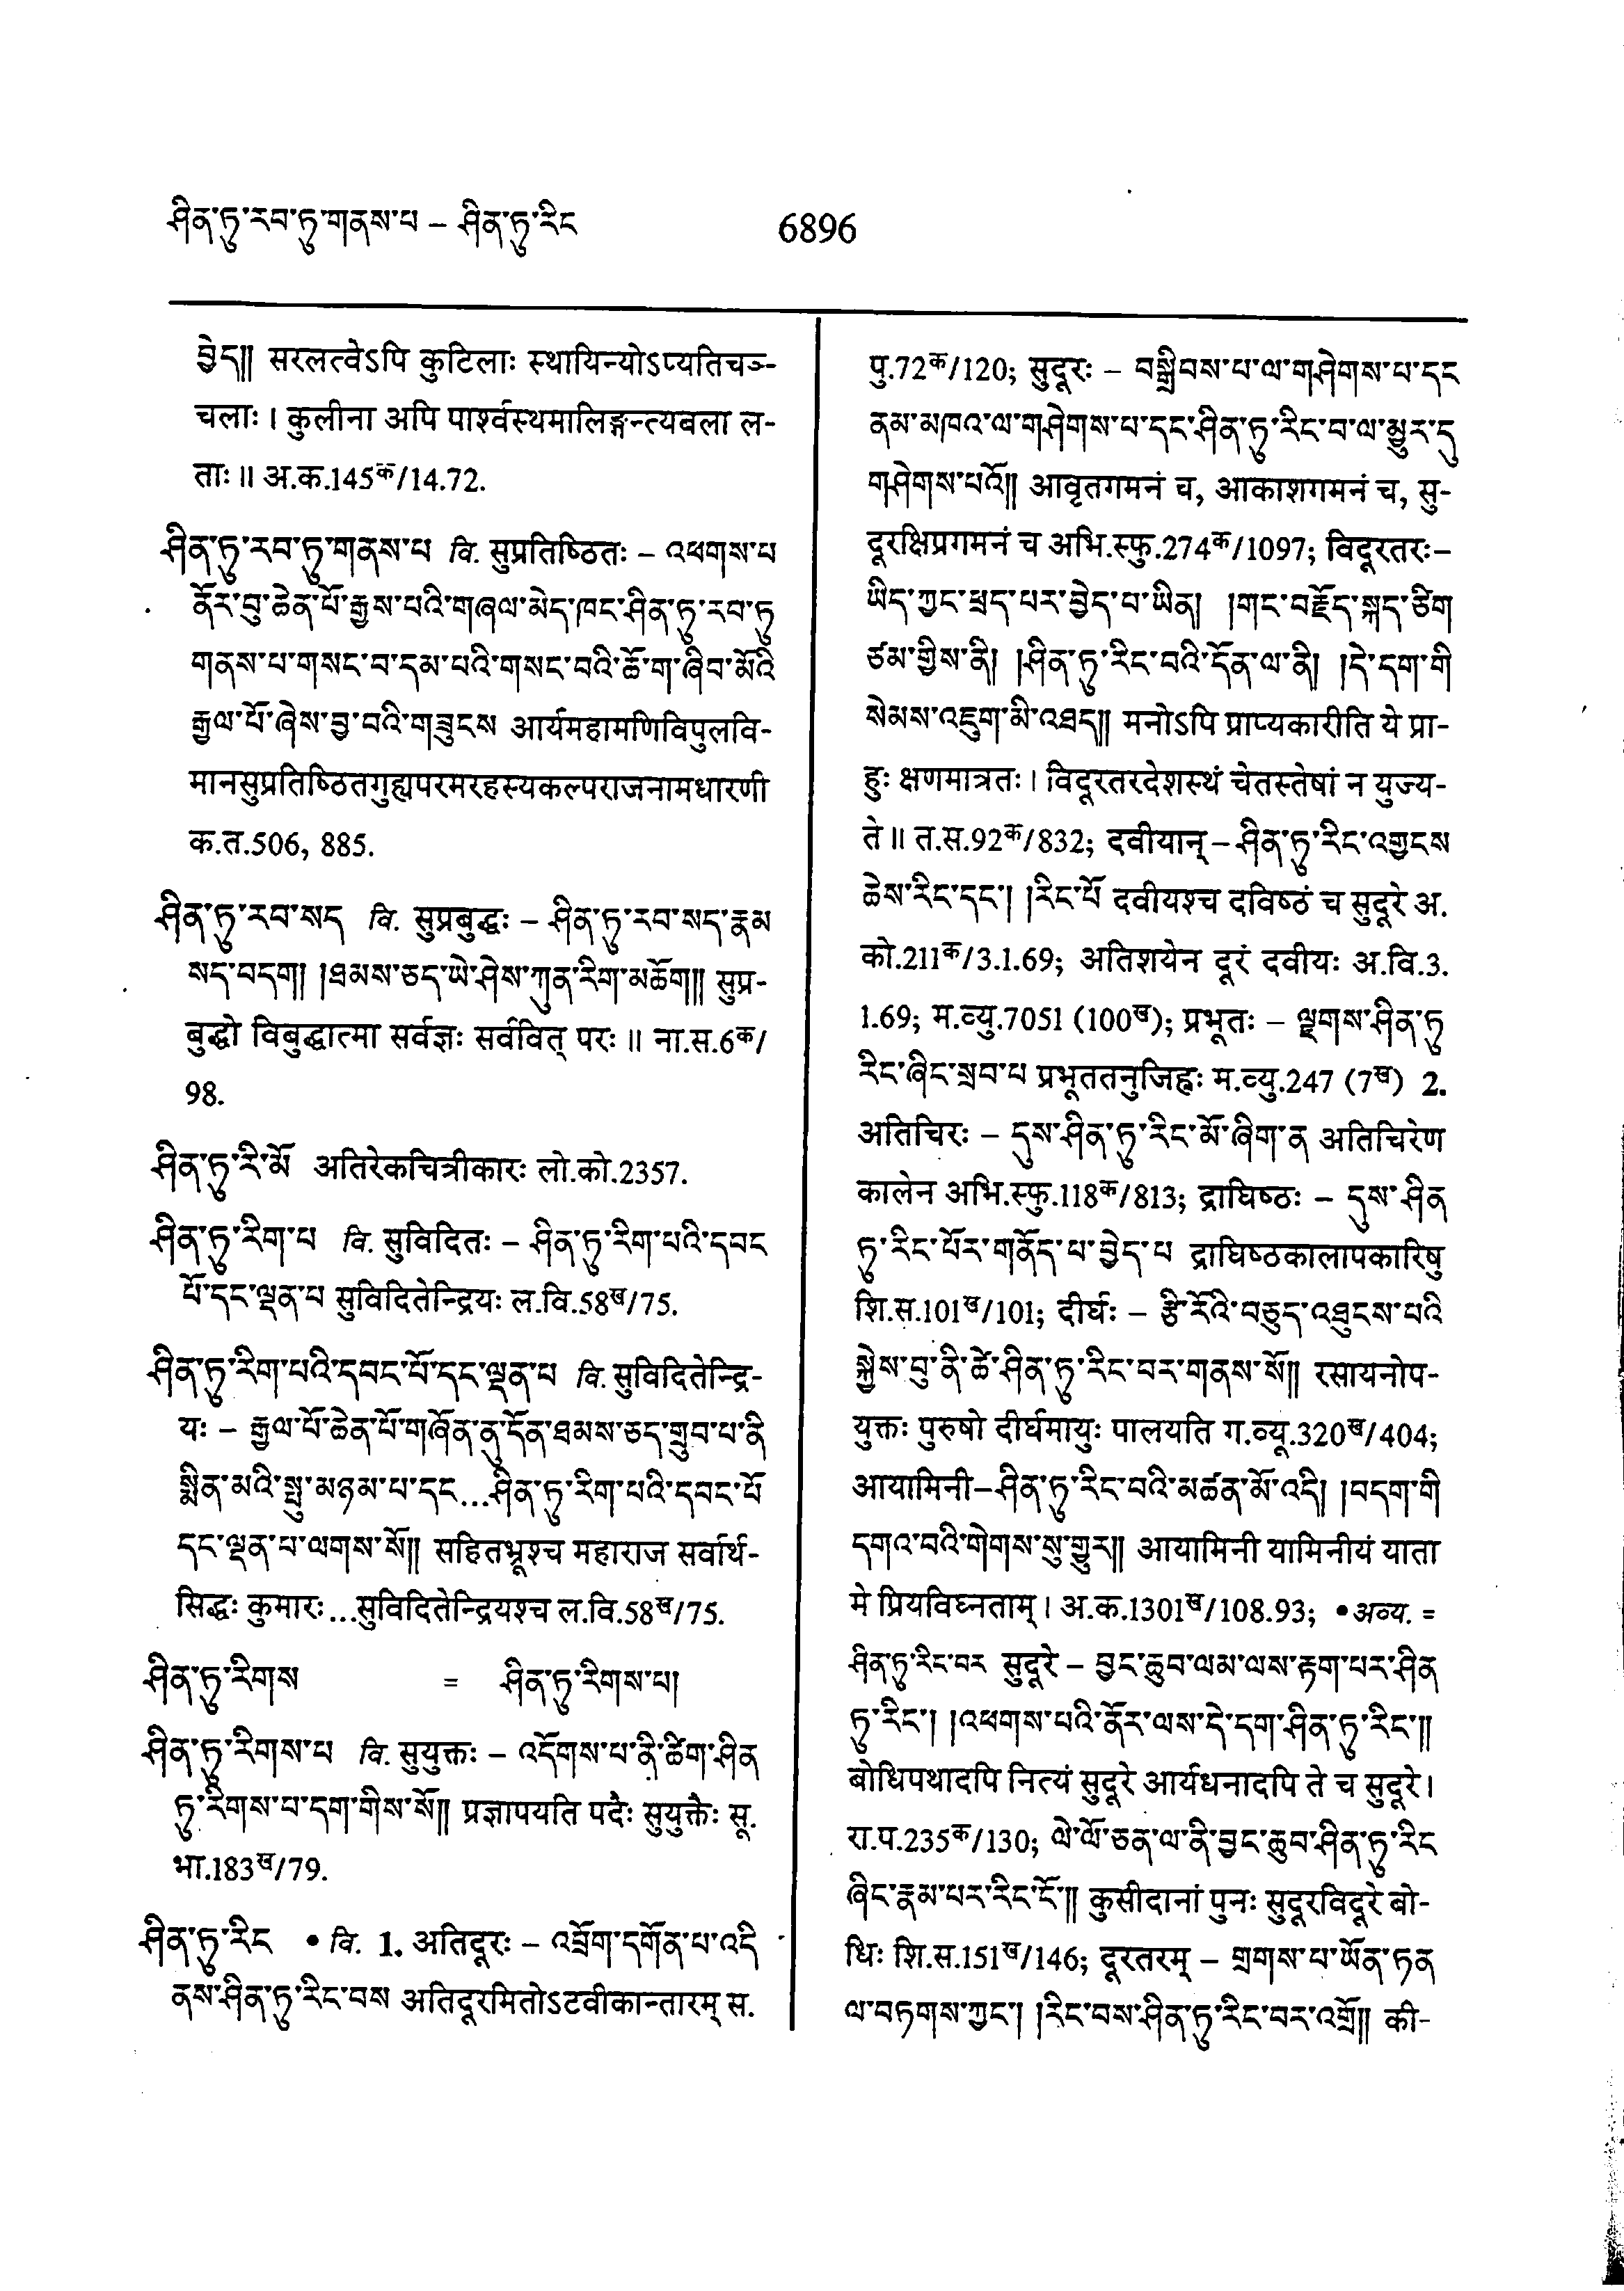 ཤིན་ཏུ་རབ་ཏུ་གནས་པ – ཤིན་ཏུ་རིང 6896
བྱེད།། सरलत्वेऽपि कुटिलाः स्थायिन्योऽप्यतिचञ्-
चलाः । कुलीना अपि पार्श्वस्थमालिङ्गन्त्यबला ल-
ताः ॥ अ.क.145क/14.72.
ཤིན་ཏུ་རབ་ཏུ་གནས་པ वि. सुप्रतिष्ठितः – འཕགས་པ
ནོར་བུ་ཆེན་པོ་རྒྱས་པའི་གཞལ་མེད་ཁང་ཤིན་ཏུ་རབ་ཏུ
གནས་པ་གསང་བ་དམ་པའི་གསང་བའི་ཆོ་ག་ཞིབ་མོའི
རྒྱལ་པོ་ཞེས་བྱ་བའི་གཟུངས आर्यमहामणिविपुलवि-
मानसुप्रतिष्ठितगुह्यपरमरहस्यकल्पराजनामधारणी
क.त.506, 885.
ཤིན་ཏུ་རབ་སད वि. सुप्रबुद्धः – ཤིན་ཏུ་རབ་སད་རྣམ
སད་བདག། །ཐམས་ཅད་ཡེ་ཤེས་ཀུན་རིག་མཆོག།། सुप्र-
बुद्धो विबुद्धात्मा सर्वज्ञः सर्ववित् परः ॥ ना.स.6क/
98.
ཤིན་ཏུ་རི་མོ अतिरेकचित्रीकारः लो.को.2357.
ཤིན་ཏུ་རིག་པ वि. सुविदितः – ཤིན་ཏུ་རིག་པའི་དབང
པོ་དང་ལྡན་པ सुविदितेन्द्रियः ल.वि.58ख/75.
ཤིན་ཏུ་རིག་པའི་དབང་པོ་དང་ལྡན་པ वि. सुविदितेन्द्रि-
यः – རྒྱལ་པོ་ཆེན་པོ་གཞོན་ནུ་དོན་ཐམས་ཅད་གྲུབ་པ་ནི
སྨིན་མའི་སྤུ་མཉམ་པ་དང...ཤིན་ཏུ་རིག་པའི་དབང་པོ
དང་ལྡན་པ་ལགས་སོ།། सहितभ्रूश्च महाराज सर्वार्थ-
सिद्धः कुमारः ...सुविदितेन्द्रियश्च ल.वि.58ख/75.
ཤིན་ཏུ་རིགས = ཤིན་ཏུ་རིགས་པ།
ཤིན་ཏུ་རིགས་པ वि. सुयुक्तः – འདོགས་པ་ནི་ཚིག་ཤིན
ཏུ་རིགས་པ་དག་གིས་སོ།། प्रज्ञापयति पदैः सुयुक्तैः सू.
भा.183ख/79.
ཤིན་ཏུ་རིང • वि. 1. अतिदूरः – འབྲོག་དགོན་པ་འདི
ནས་ཤིན་ཏུ་རིང་བས अतिदूरमितोऽटवीकान्तारम् स.
पु.72क/120; सुदूरः – བསྒྲིབས་པ་ལ་གཤེགས་པ་དང
ནམ་མཁའ་ལ་གཤེགས་པ་དང་ཤིན་ཏུ་རིང་བ་ལ་མྱུར་དུ
གཤེགས་པའོ།། आवृतगमनं च, आकाशगमनं च, सु-
दूरक्षिप्रगमनं च अभि.स्फु.274क/1097; विदूरतरः–
ཡིད་ཀྱང་ཕྲད་པར་བྱེད་པ་ཡིན། །གང་བརྗོད་སྐད་ཅིག
ཙམ་གྱིས་ནི། །ཤིན་ཏུ་རིང་བའི་དོན་ལ་ནི། །དེ་དག་གི
སེམས་འཇུག་མི་འཐད།། मनोऽपि प्राप्यकारीति ये प्रा-
हुः क्षणमात्रतः । विदूरतरदेशस्थं चेतस्तेषां न युज्य-
ते ॥ त.स.92क/832; दवीयान् – ཤིན་ཏུ་རིང་འགྱངས
ཆེས་རིང་དང་། །རིང་པོ दवीयश्च दविष्ठं च सुदूरे अ.
को.211क/3.1.69; अतिशयेन दूरं दवीयः अ.वि.3.
1.69; म.व्यु.7051 (100ख); प्रभूतः – ལྗགས་ཤིན་ཏུ
རིང་ཞིང་སྲབ་པ प्रभूततनुजिह्वः म.व्यु.247 (7ख) 2.
अतिचिरः – དུས་ཤིན་ཏུ་རིང་མོ་ཞིག་ན अतिचिरेण
कालेन अभि.स्फु.118क/813; द्राघिष्ठः – དུས་ཤིན
ཏུ་རིང་པོར་གནོད་པ་བྱེད་པ द्राघिष्ठकालापकारिषु
शि.स.101ख/101; दीर्घः – རྩི་རོའི་བཅུད་འཐུངས་པའི
སྐྱེས་བུ་ནི་ཚེ་ཤིན་ཏུ་རིང་བར་གནས་སོ།། रसायनोप-
युक्तः पुरुषो दीर्घमायुः पालयति ग.व्यू.320ख/404;
आयामिनी–ཤིན་ཏུ་རིང་བའི་མཚན་མོ་འདི། །བདག་གི
དགའ་བའི་གེགས་སུ་གྱུར།། आयामिनी यामिनीयं याता
मे प्रियविघ्नताम् । अ.क.1301ख/108.93; • अव्य. =
ཤིན་ཏུ་རིང་བར सुदूरे – བྱང་ཆུབ་ལམ་ལས་རྟག་པར་ཤིན
ཏུ་རིང་། །འཕགས་པའི་ནོར་ལས་དེ་དག་ཤིན་ཏུ་རིང་།།
बोधिपथादपि नित्यं सुदूरे आर्यधनादपि ते च सुदूरे ।
रा.प.235क/130; ལེ་ལོ་ཅན་ལ་ནི་བྱང་ཆུབ་ཤིན་ཏུ་རིང
ཞིང་རྣམ་པར་རིང་ངོ་།། कुसीदानां पुनः सुदूरविदूरे बो-
धिः शि.स.151ख/146; दूरतरम् – གྲགས་པ་ཡོན་ཏན
ལ་བཏགས་ཀྱང་། །རིང་བས་ཤིན་ཏུ་རིང་བར་འགྲོ།། की-